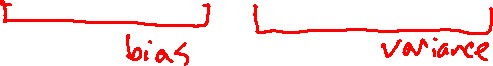 bias variance